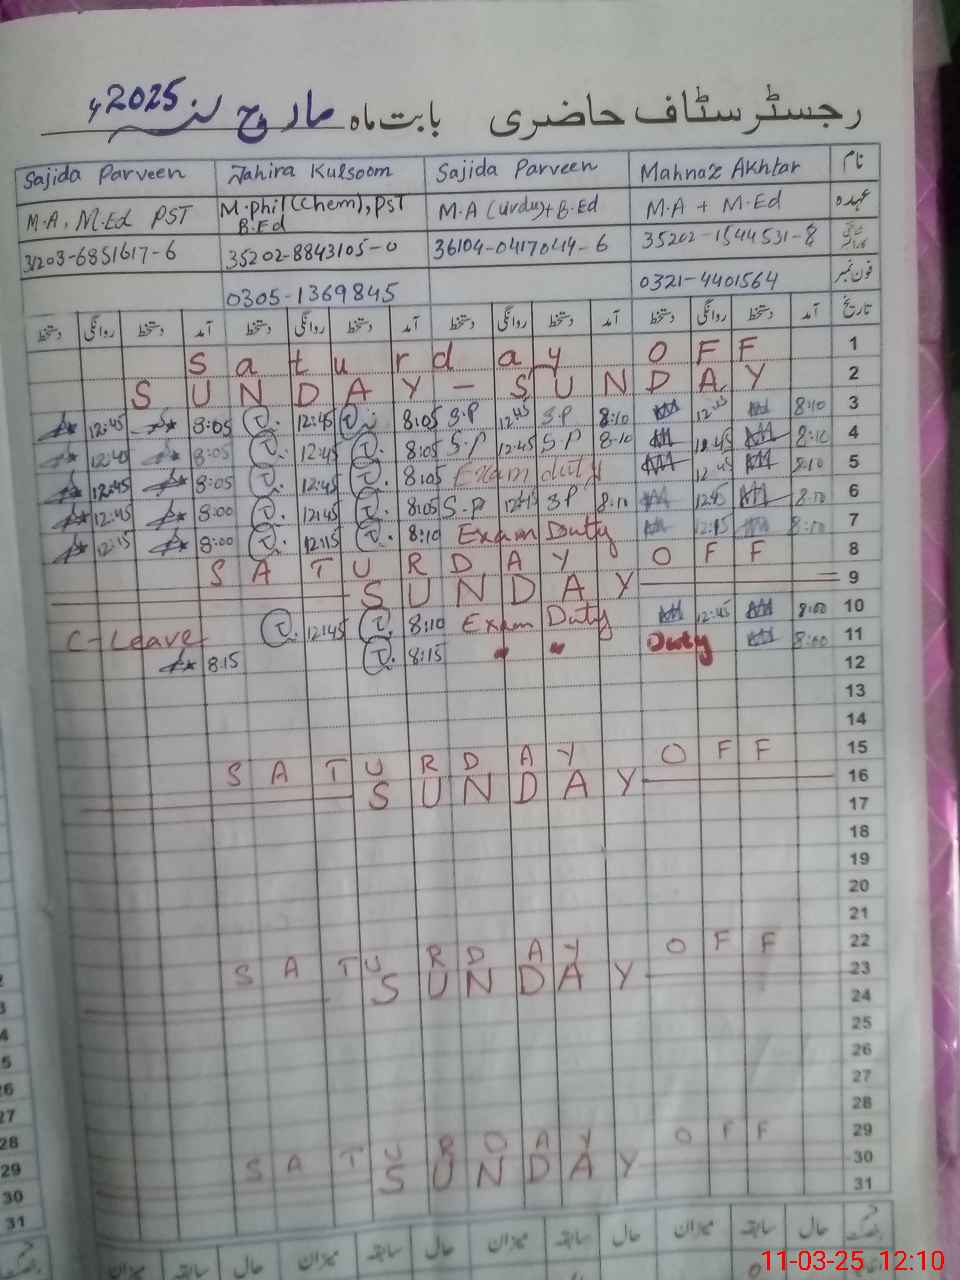 رجسٹر سٹاف حاضری بابت ماہ مارچ 2025ء
نام Mahnaz Akhtar Sajida Parveen Tahira Kulsoom Sajida Parveen
عہدہ M.A + M.Ed M.A (urdu)+B.Ed M.phil(Chem), PST B.Ed M.A, M.Ed PST
35202-1544531-8 36104-0417044-6 35202-8843105-0 31203-6851617-6
فون نمبر 0321-4401564 0305-1369845
تاریخ آمد دستخط روانگی دستخط آمد دستخط روانگی دستخط آمد دستخط روانگی دستخط آمد دستخط روانگی دستخط
Saturday OFF 1
SUNDAY – SUNDAY 2
12:45 8:05 12:45 8:05 S.P 12:45 S.P 8:10 12:45 8:10 3
12:45 8:05 12:45 8:05 S.P 12:45 S.P 8:10 12:45 8:10 4
12:45 8:05 12:45 8:05 Exam duty 12:45 8:10 5
12:45 8:00 12:45 8:05 S.P 12:45 S.P 8:10 12:45 8:10 6
12:15 8:00 12:15 8:10 Exam Duty 12:15 8:10 7
SATURDAY OFF 8
SUNDAY 9
C-Leave 12:45 8:10 Exam Duty 12:45 8:00 10
8:15 8:15 " " Duty 8:00 11
12
13
14
SATURDAY OFF 15
SUNDAY 16
17
18
19
20
21
SATURDAY OFF 22
SUNDAY 23
24
25
26
27
28
SATURDAY OFF 29
SUNDAY 30
31
28
29
30
31
حال سابقہ میزان حال سابقہ میزان حال سابقہ میزان حال سابقہ میزان
11-03-25 12:10